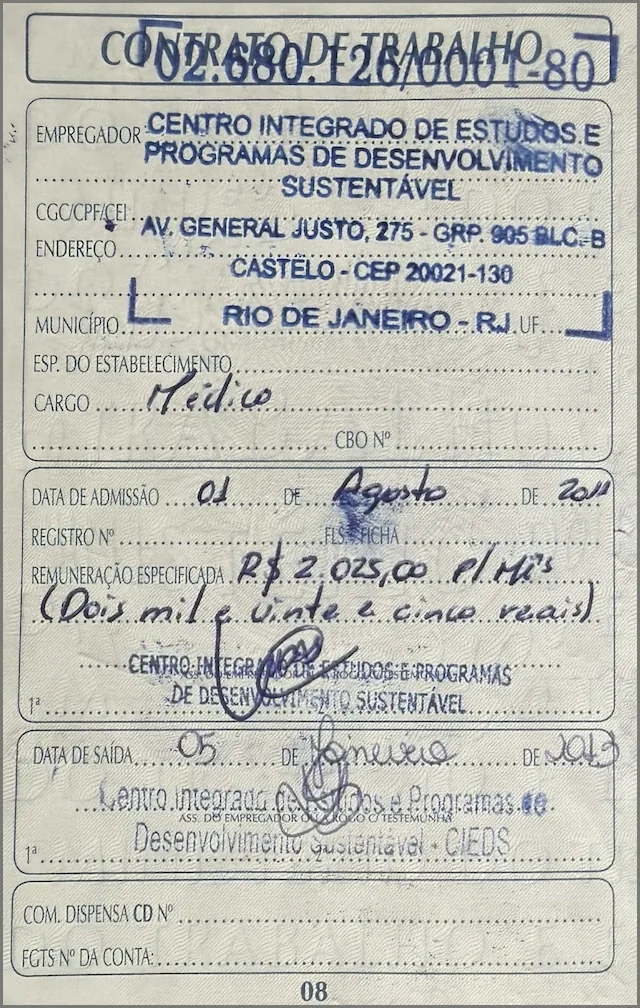 CONTRATO DE TRABALHO
02.680.126/0001-80
EMPREGADOR CENTRO INTEGRADO DE ESTUDOS E
PROGRAMAS DE DESENVOLVIMENTO
SUSTENTÁVEL
CGC/CPF/CEI
AV. GENERAL JUSTO, 275 - GRP. 905 BLC. B
ENDEREÇO
CASTELO - CEP 20021-130
MUNICÍPIO RIO DE JANEIRO - RJ UF
ESP. DO ESTABELECIMENTO
CARGO Médico
CBO Nº
DATA DE ADMISSÃO 01 DE Agosto DE 2011
REGISTRO Nº FLS. FICHA
REMUNERAÇÃO ESPECIFICADA R$ 2.025,00 P/ Mês
(Dois mil e vinte e cinco reais)
CENTRO INTEGRADO DE ESTUDOS E PROGRAMAS
ASS. DO EMPREGADOR OU A ROGO C/ TESTEMUNHA
1ª DE DESENVOLVIMENTO SUSTENTÁVEL
DATA DE SAÍDA 05 DE Janeiro DE 2013
Centro Integrado de Estudos e Programas de
ASS. DO EMPREGADOR OU A ROGO C/ TESTEMUNHA
1ª Desenvolvimento Sustentável - CIEDS
2ª
COM. DISPENSA CD Nº
FGTS Nº DA CONTA:
08